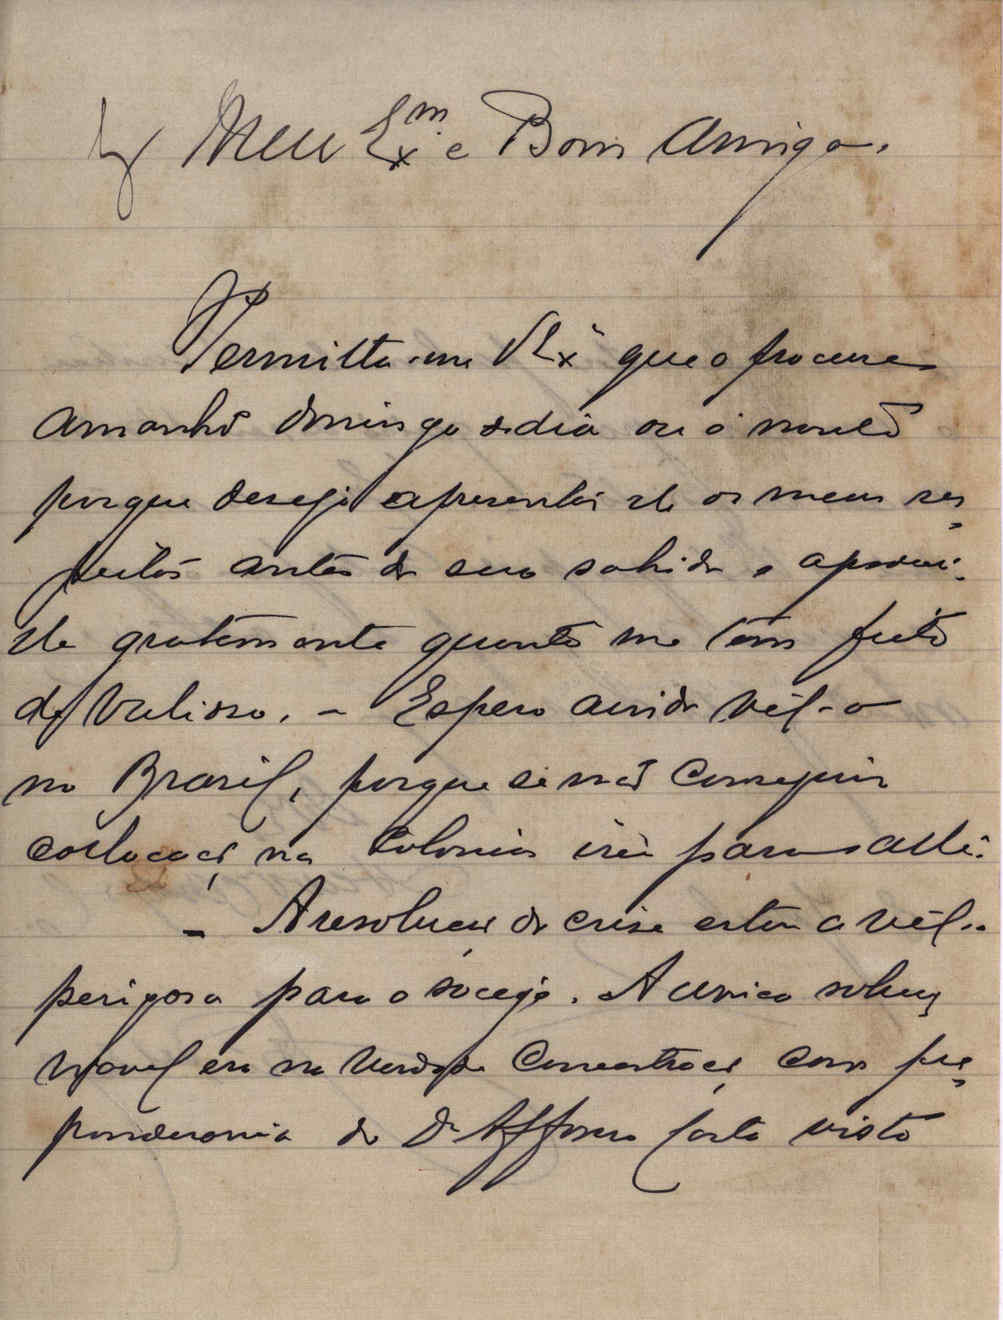 Meu Exm. e Bom Amigo.
Permitta-me V Exª que o procure
amanhã domingo de dia ou á noute
porque desejo apresentar-lhe os meus res=
peitos antes da sua sahida e
lhe gratamente quanto me tem feito
de valioso. – Espero ainda vêl-o
no Brasil, porque se não conseguir
collocação na Colonia irei para alli.
– A resolução da crise está a vêl-a
perigosa para o socego. A unica soluç
era na verdade Concentração com pre=
ponderancia do Dr Affonso Costa visto